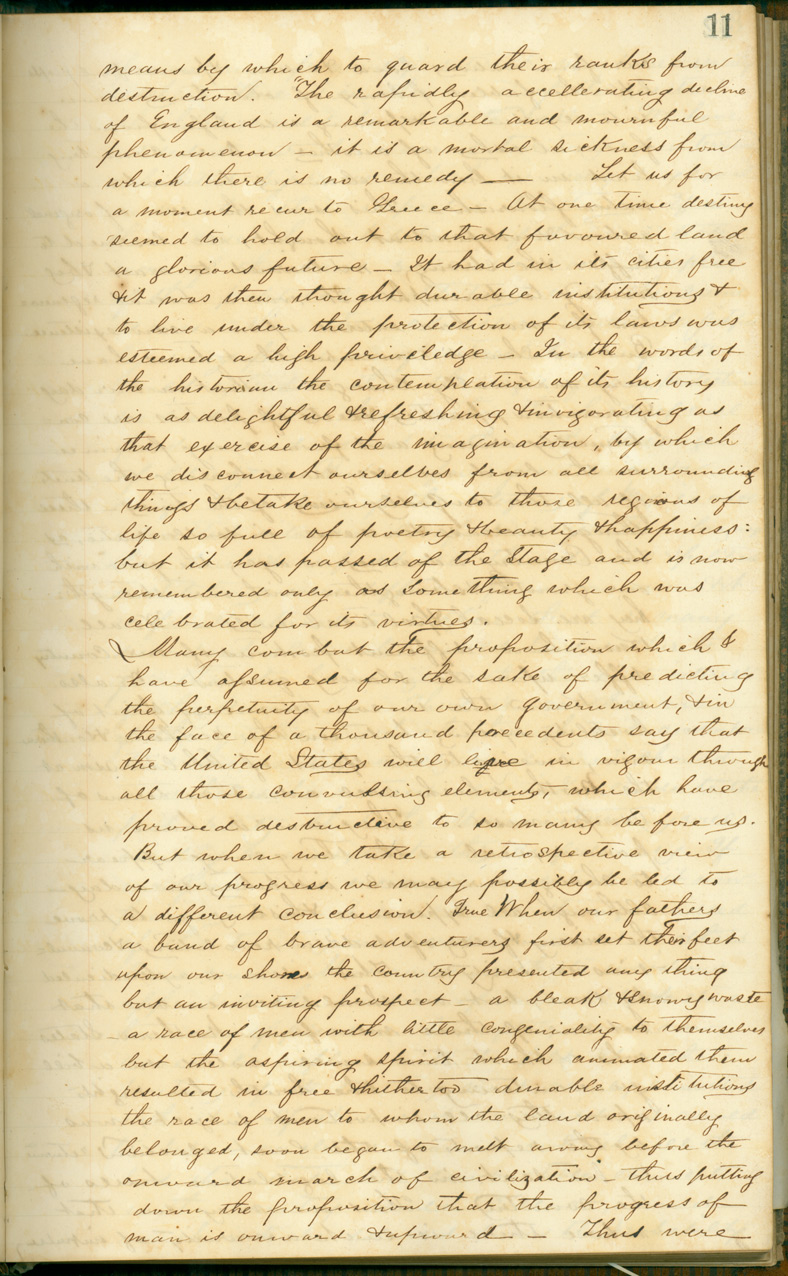 11
means by which to guard their ranks from
destruction. "The rapidly accellerating decline
of England is a remarkable and mournful
phenomenon — it is a mortal sickness from
which there is no remedy — Let us for
a moment recur to Greece — At one time destiny
seemed to hold out to that favoured land
a glorious future — It had in its cities free
& it was then thought durable institutions &
to live under the protection of its laws was
esteemed a high priviledge — In the words of
the historian the contemplation of its history
is as delightful & refreshing & invigorating as
that exercise of the imagination, by which
we disconnect ourselves from all surrounding
things & betake ourselves to those regions of
life so full of poetry & beauty & happiness:
but it has passed of the Stage and is now
remembered only as Something which was
celebrated for its virtues.
Many combat the proposition which I
have assumed for the sake of predicting
the perpetuity of our own government, & in
the face of a thousand precedents say that
the United States will live in vigour through
all those convulsing elements, which have
proved destructive to so many before us.
But when we take a retrospective view
of our progress we may possibly be led to
a different conclusion. True When our fathers
a band of brave adventurers first set their feet
upon our shores the country presented any thing
but an inviting prospect — a bleak & snowy waste
— a race of men with little congeniality to themselves
but the aspiring spirit which animated them
resulted in free & hitherto durable institutions
the race of men to whom the land originally
belonged, soon began to melt away before the
onward march of civilization — thus putting
down the proposition that the progress of
man is onward & upward — Thus were